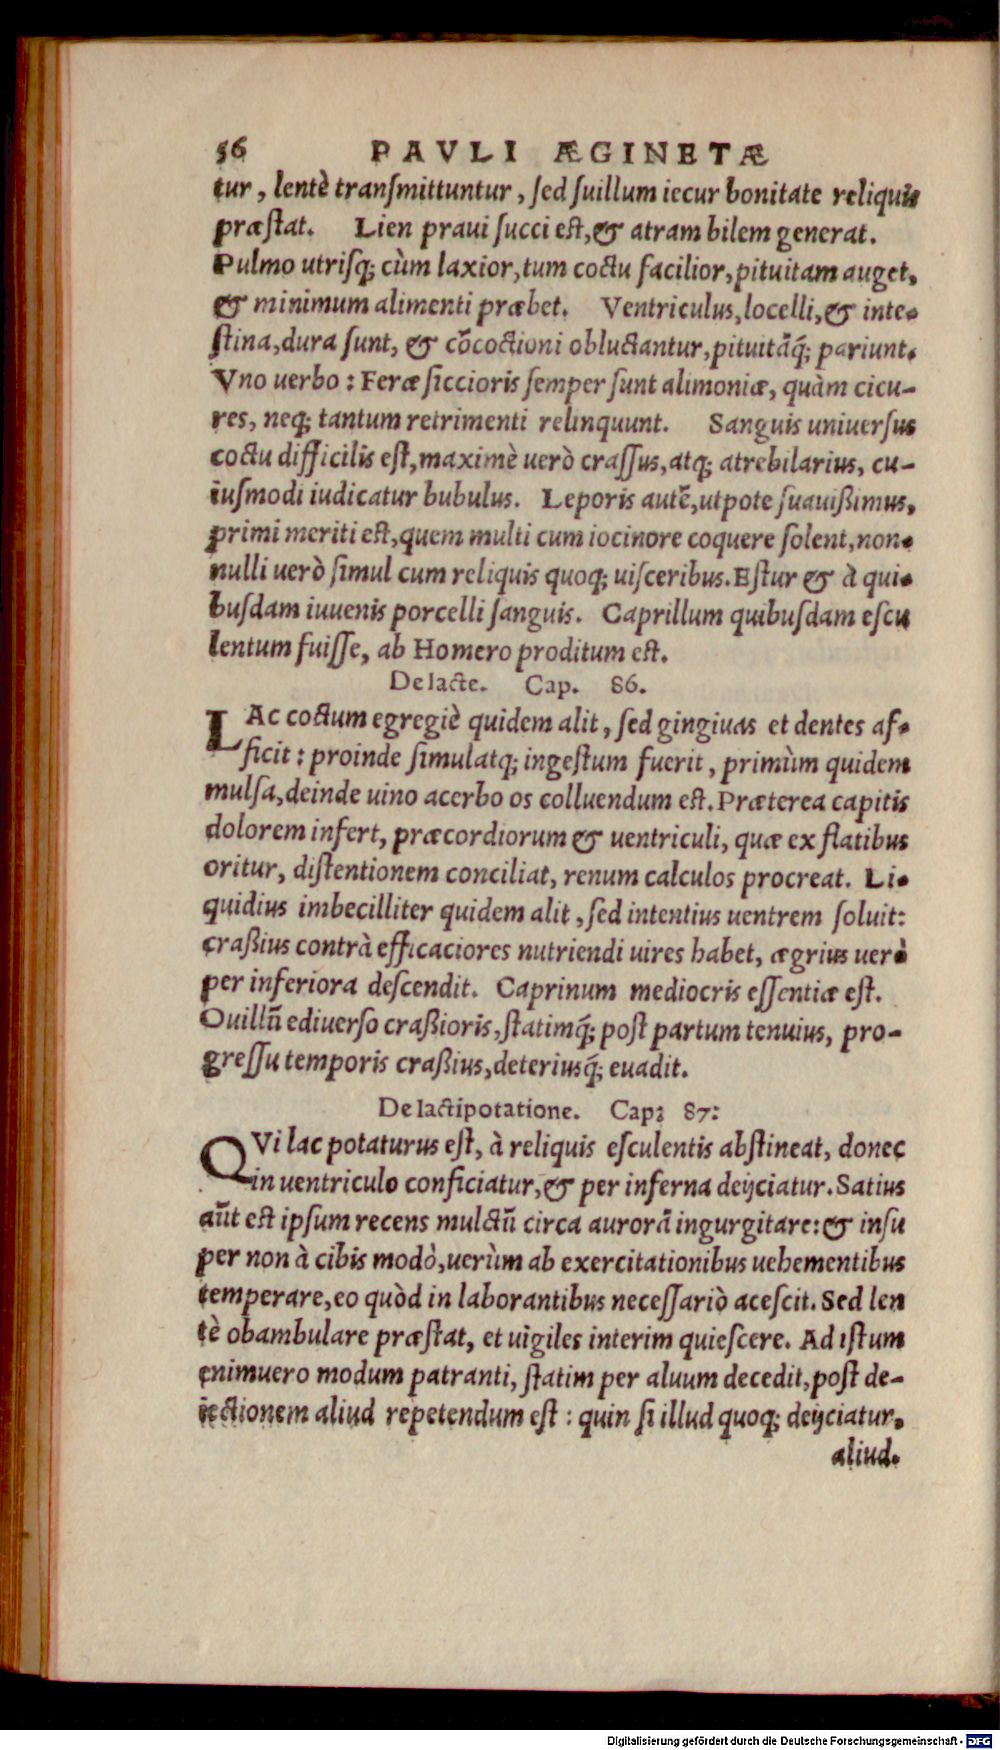 56 PAVLI ÆGINETÆ
tur, lentè transmittuntur, sed suillum iecur bonitate reliquis
præstat. Lien praui succi est, & atram bilem generat.
Pulmo utrisq; cùm laxior, tum coctu facilior, pituitam auget,
& minimum alimenti præbet. Ventriculus, locelli, & inte-
stina, dura sunt, & cõcoctioni obluctantur, pituitãq́; pariunt.
Vno uerbo: Feræ siccioris semper sunt alimoniæ, quàm cicu-
res, neq; tantum retrimenti relinquunt. Sanguis uniuersus
coctu difficilis est, maximè uerò crassus, atq; atrebilarius, cu-
iusmodi iudicatur bubulus. Leporis autẽ, utpote suauißimus,
primi meriti est, quem multi cum iocinore coquere solent, non-
nulli uerò simul cum reliquis quoq; uisceribus. Estur & à qui-
busdam iuuenis porcelli sanguis. Caprillum quibusdam escu
lentum fuisse, ab Homero proditum est.
De lacte. Cap. 86.
LAc coctum egregiè quidem alit, sed gingiuas et dentes af-
ficit: proinde simulatq; ingestum fuerit, primùm quidem
mulsa, deinde uino acerbo os colluendum est. Præterea capitis
dolorem infert, præcordiorum & uentriculi, quæ ex flatibus
oritur, distentionem conciliat, renum calculos procreat. Li-
quidius imbecilliter quidem alit, sed intentius uentrem soluit:
craßius contrà efficaciores nutriendi uires habet, ægrius uerò
per inferiora descendit. Caprinum mediocris essentiæ est.
Ouillũ ediuerso craßioris, statimq́; post partum tenuius, pro-
gressu temporis craßius, deteriusq́; euadit.
De lactipotatione. Cap: 87:
QVi lac potaturus est, à reliquis esculentis abstineat, donec
in uentriculo conficiatur, & per inferna deijciatur. Satius
aũt est ipsum recens mulctũ circa aurorã ingurgitare: & insu
per non à cibis modò, uerùm ab exercitationibus uehementibus
temperare, eo quòd in laborantibus necessariò acescit. Sed len
tè obambulare præstat, et uigiles interim quiescere. Ad istum
enimuero modum patranti, statim per aluum decedit, post de-
iectionem aliud repetendum est: quin si illud quoq; deijciatur,
aliud.
Digitalisierung gefördert durch die Deutsche Forschungsgemeinschaft - DFG